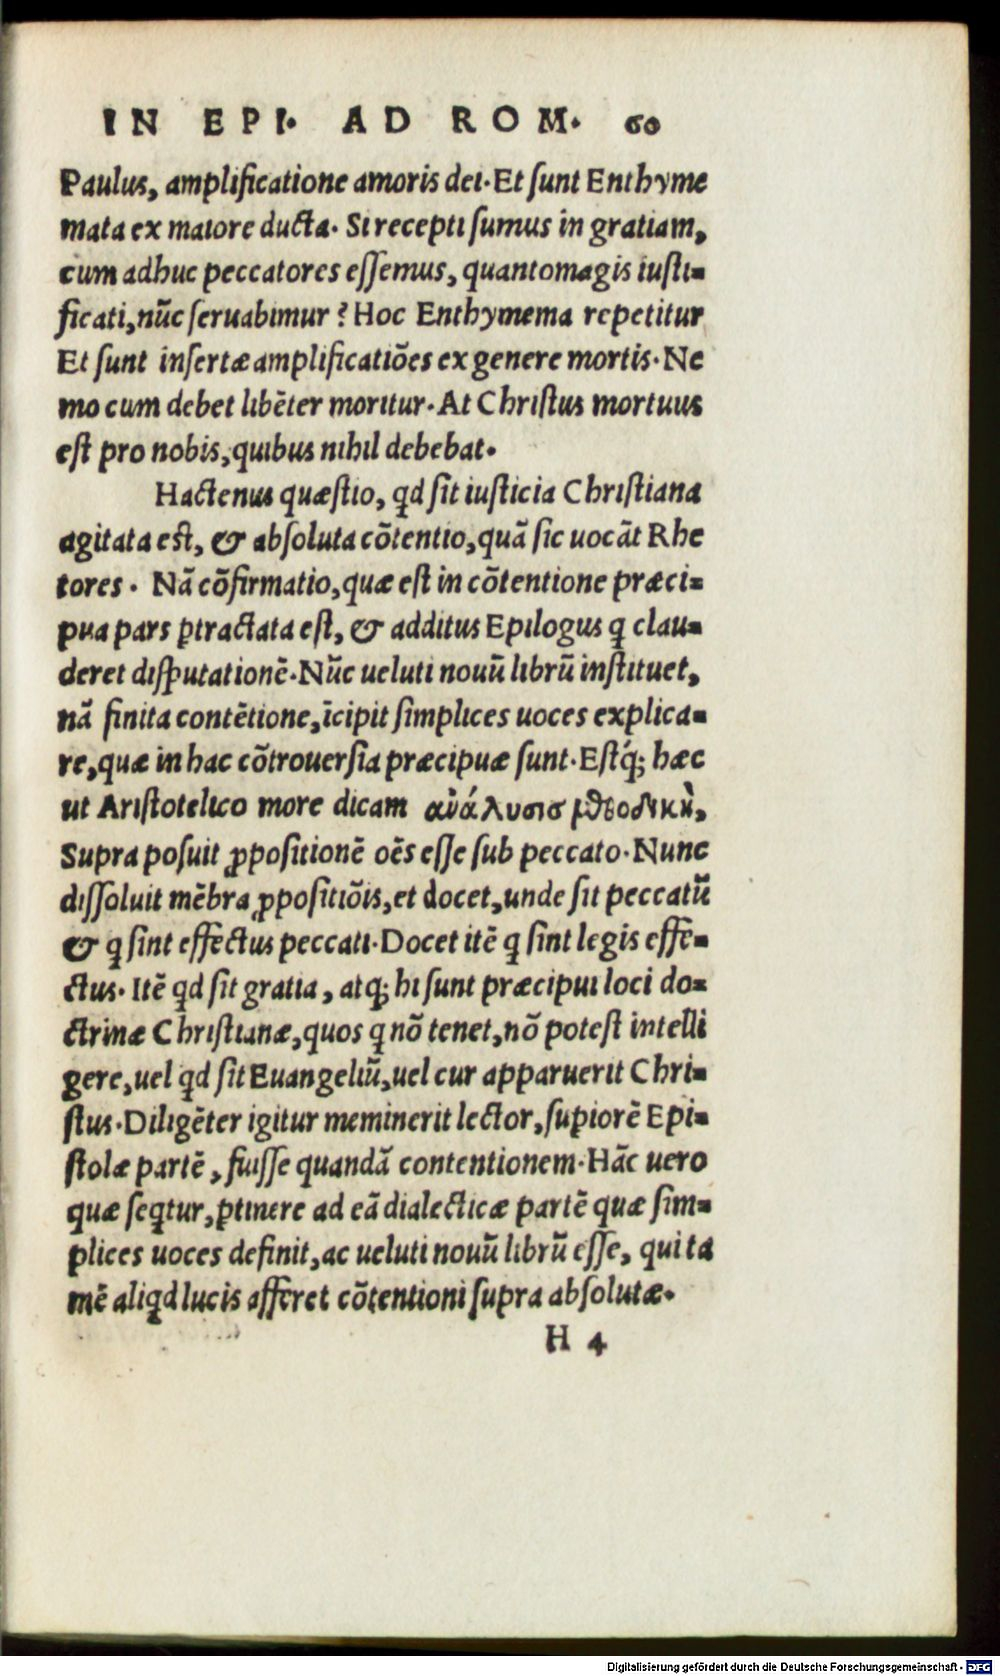 IN EPI. AD ROM. 60
Paulus, amplificatione amoris dei. Et ſunt Enthyme
mata ex maiore ducta. Si recepti ſumus in gratiam,
cum adhuc peccatores eſſemus, quantomagis iuſti-
ficati, nūc ſeruabimur? Hoc Enthymema repetitur
Et ſunt inſertæ amplificatiōes ex genere mortis. Ne
mo cum debet libēter moritur. At Chriſtus mortuus
eſt pro nobis, quibus nihil debebat.
Hactenus quæſtio, qd ſit iuſticia Chriſtiana
agitata eſt, & abſoluta cōtentio, quā ſic uocāt Rhe
tores. Nā cōfirmatio, quæ eſt in cōtentione præci-
pua pars ꝑtractata eſt, & additus Epilogus q clau-
deret diſputationē. Nūc ueluti nouū librū inſtituet,
nā finita contētione, īcipit ſimplices uoces explica-
re, quæ in hac cōtrouerſia præcipuæ ſunt. Eſtq́; hæc
ut Ariſtotelico more dicam ανάλυσισ μθοδικὴ,
Supra poſuit ꝓpoſitionē oēs eſſe ſub peccato. Nunc
diſſoluit mēbra ꝓpoſitiōis, et docet, unde ſit peccatū
& q ſint effectus peccati. Docet itē q ſint legis effe-
ctus. Itē qd ſit gratia, atq; hi ſunt præcipui loci do-
ctrinæ Chriſtianæ, quos q nō tenet, nō poteſt intelli
gere, uel qd ſit Euangeliū, uel cur apparuerit Chri-
ſtus. Diligēter igitur meminerit lector, ſuꝑiorē Epi-
ſtolæ partē, fuiſſe quandā contentionem. Hāc uero
quæ ſeqtur, ꝑtinere ad eā dialecticæ partē quæ ſim-
plices uoces definit, ac ueluti nouū librū eſſe, qui ta
mē aliqd lucis afferet cōtentioni ſupra abſolutæ.
H 4
Digitalisierung gefördert durch die Deutsche Forschungsgemeinschaft - DFG